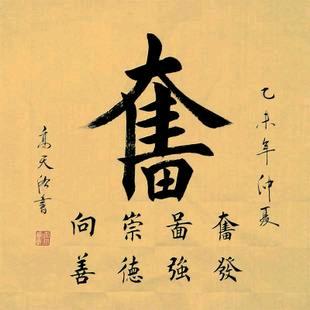 奮
乙未年仲夏
奮發
啚強
崇德
向善
高天欣書